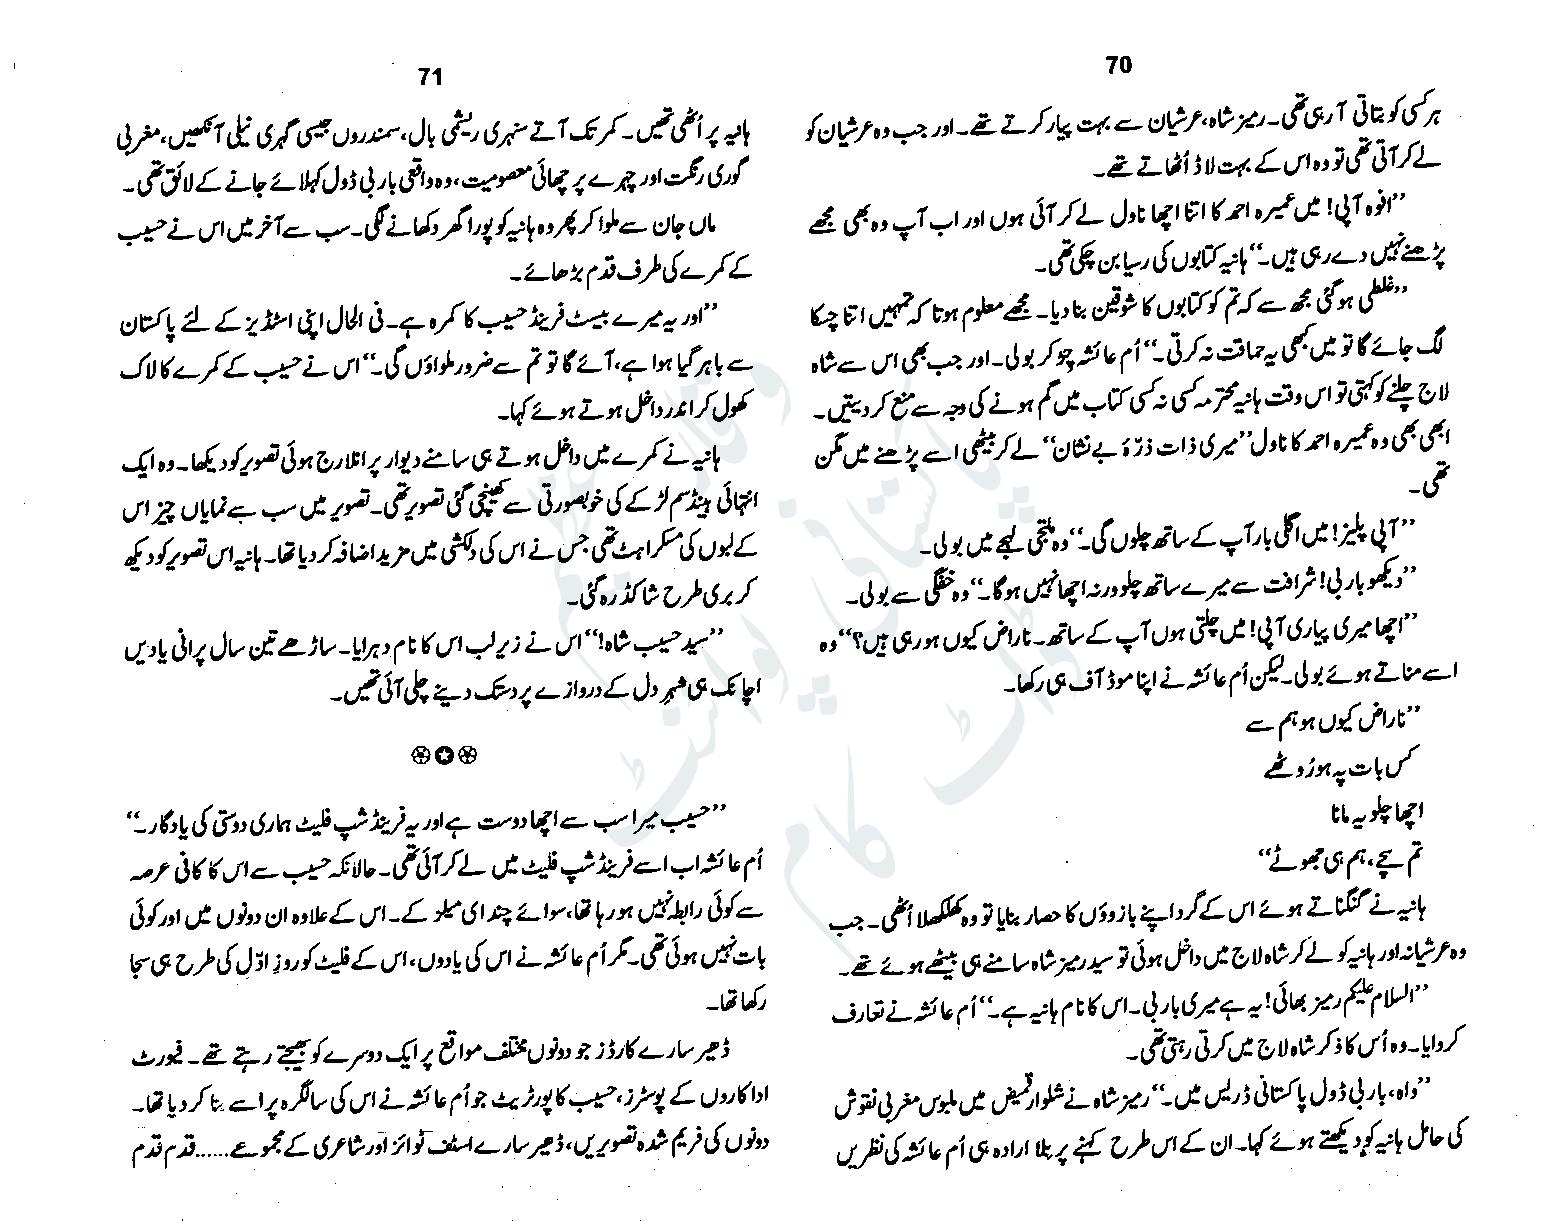 70
ہر کسی کو بتاتی آ رہی تھی۔ رمیز شاہ، عرشیان سے بہت پیار کرتے تھے۔ اور جب وہ عرشیان کو
لے کر آتی تھی تو وہ اس کے بہت لاڈ اُٹھاتے تھے۔
”افوہ آپی! میں عمیرہ احمد کا اتنا اچھا ناول لے کر آئی ہوں اور اب آپ وہ بھی مجھے
پڑھنے نہیں دے رہی ہیں۔“ ہانیہ کتابوں کی رسیا بن چکی تھی۔
”غلطی ہو گئی مجھ سے کہ تم کو کتابوں کا شوقین بنا دیا۔ مجھے معلوم ہوتا کہ تمہیں اتنا چسکا
لگ جائے گا تو میں کبھی یہ حماقت نہ کرتی۔“ اُم عائشہ چڑ کر بولی۔ اور جب بھی اس سے شاہ
لاج چلنے کو کہتی تو اس وقت ہانیہ محترمہ کسی نہ کسی کتاب میں گم ہونے کی وجہ سے منع کر دیتیں۔
ابھی بھی وہ عمیرہ احمد کا ناول ”میری ذات ذرّۂ بے نشان“ لے کر بیٹھی اسے پڑھنے میں مگن
تھی۔
”آپی پلیز! میں اگلی بار آپ کے ساتھ چلوں گی۔“ وہ ملتجی لہجے میں بولی۔
”دیکھو باربی! شرافت سے میرے ساتھ چلو ورنہ اچھا نہیں ہو گا۔“ وہ خفگی سے بولی۔
”اچھا میری پیاری آپی! میں چلتی ہوں آپ کے ساتھ۔ ناراض کیوں ہو رہی ہیں؟“ وہ
اسے مناتے ہوئے بولی۔ لیکن اُم عائشہ نے اپنا موڈ آف ہی رکھا۔
”ناراض کیوں ہو ہم سے
کس بات پہ ہو رُوٹھے
اچھا چلو یہ مانا
تم سچے، ہم ہی جھوٹے“
ہانیہ نے گنگناتے ہوئے اس کے گرد اپنے بازوؤں کا حصار بنایا تو وہ کھلکھلا اُٹھی۔ جب
وہ عرشیانہ اور ہانیہ کو لے کر شاہ لاج میں داخل ہوئی تو سید رمیز شاہ سامنے ہی بیٹھے ہوئے تھے۔
”السلام علیکم رمیز بھائی! یہ ہے میری باربی۔ اس کا نام ہانیہ ہے۔“ اُم عائشہ نے تعارف
کروایا۔ وہ اُس کا ذکر شاہ لاج میں کرتی رہتی تھی۔
”واہ، باربی ڈول پاکستانی ڈریس میں۔“ رمیز شاہ نے شلوار قمیض میں ملبوس مغربی نقوش
کی حامل ہانیہ کو دیکھتے ہوئے کہا۔ ان کے اس طرح کہنے پر بلا ارادہ ہی اُم عائشہ کی نظریں
71
ہانیہ پر اُٹھی تھیں۔ کمر تک آتے سنہری ریشمی بال، سمندروں جیسی گہری نیلی آنکھیں، مغربی
گوری رنگت اور چہرے پر چھائی معصومیت، وہ واقعی باربی ڈول کہلائے جانے کے لائق تھی۔
ماں جان سے ملوا کر پھر وہ ہانیہ کو پورا گھر دکھانے لگی۔ سب سے آخر میں اس نے حسیب
کے کمرے کی طرف قدم بڑھائے۔
”اور یہ میرے بیسٹ فرینڈ حسیب کا کمرہ ہے۔ فی الحال اپنی اسٹڈیز کے لئے پاکستان
سے باہر گیا ہوا ہے، آئے گا تو تم سے ضرور ملواؤں گی۔“ اس نے حسیب کے کمرے کا لاک
کھول کر اندر داخل ہوتے ہوئے کہا۔
ہانیہ نے کمرے میں داخل ہوتے ہی سامنے دیوار پر انلارج ہوئی تصویر کو دیکھا۔ وہ ایک
انتہائی ہینڈسم لڑکے کی خوبصورتی سے کھینچی گئی تصویر تھی۔ تصویر میں سب سے نمایاں چیز اس
کے لبوں کی مسکراہٹ تھی جس نے اس کی دلکشی میں مزید اضافہ کر دیا تھا۔ ہانیہ اس تصویر کو دیکھ
کر بری طرح شاکڈ رہ گئی۔
”سید حسیب شاہ!“ اس نے زیر لب اس کا نام دہرایا۔ ساڑھے تین سال پرانی یادیں
اچانک ہی شہرِ دل کے دروازے پر دستک دینے چلی آئی تھیں۔
”حسیب میرا سب سے اچھا دوست ہے اور یہ فرینڈ شپ فلیٹ ہماری دوستی کی یادگار۔“
اُم عائشہ اب اسے فرینڈ شپ فلیٹ میں لے کر آئی تھی۔ حالانکہ حسیب سے اس کا کافی عرصہ
سے کوئی رابطہ نہیں ہو رہا تھا، سوائے چند ای میلز کے۔ اس کے علاوہ ان دونوں میں اور کوئی
بات نہیں ہوئی تھی۔ مگر اُم عائشہ نے اس کی یادوں، اس کے فلیٹ کو روزِ اوّل کی طرح ہی سجا
رکھا تھا۔
ڈھیر سارے کارڈز جو دونوں مختلف مواقع پر ایک دوسرے کو بھیجتے رہتے تھے۔ فیورٹ
اداکاروں کے پوسٹرز، حسیب کا پورٹریٹ جو اُم عائشہ نے اس کی سالگرہ پر اسے بنا کر دیا تھا۔
دونوں کی فریم شدہ تصویریں، ڈھیر سارے اسٹف ٹوائز اور شاعری کے مجموعے...... قدم قدم